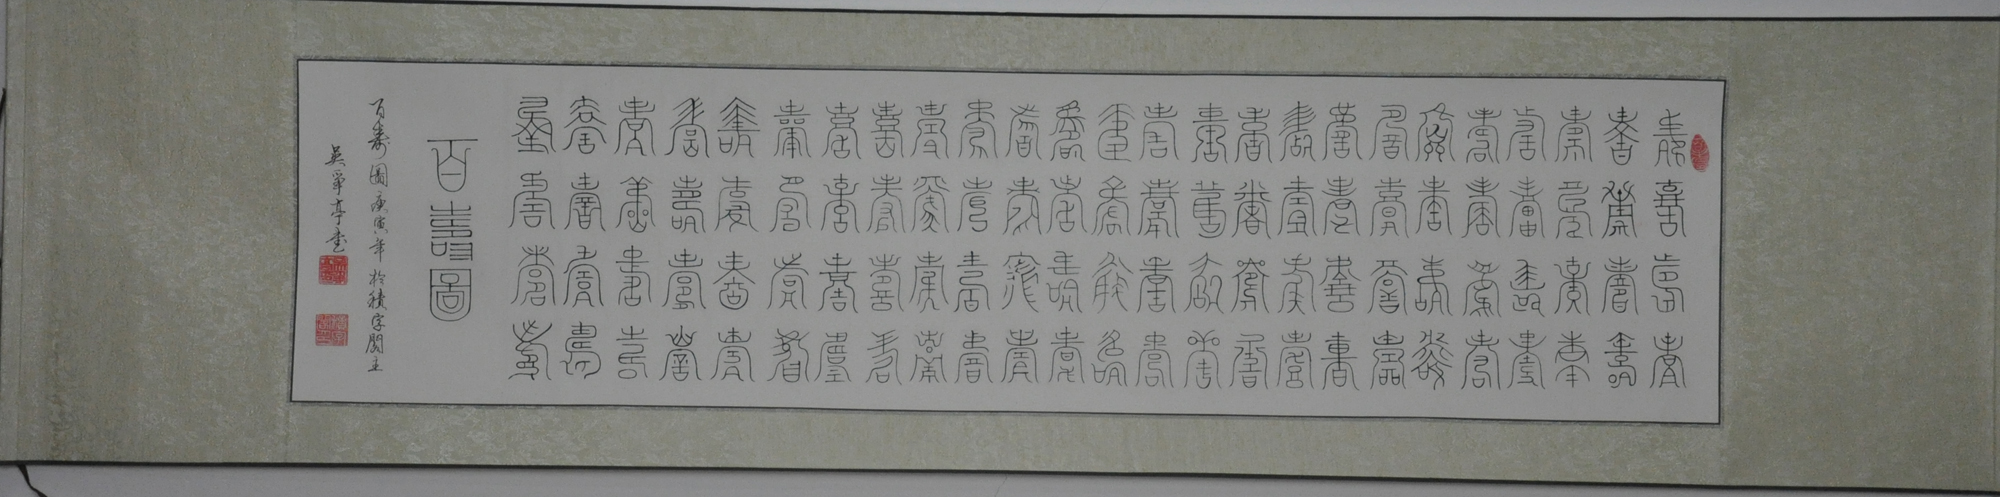 壽壽壽壽
壽壽壽壽
壽壽壽壽
壽壽壽壽
壽壽壽壽
壽壽壽壽
壽壽壽壽
壽壽壽壽
壽壽壽壽
壽壽壽壽
壽壽壽壽
壽壽壽壽
壽壽壽壽
壽壽壽壽
壽壽壽壽
壽壽壽壽
壽壽壽壽
壽壽壽壽
壽壽壽壽
壽壽壽壽
壽壽壽壽
壽壽壽壽
壽壽壽壽
壽壽壽壽
壽壽壽壽
百壽圖
百寿圖庚寅年於積字閣主
吳亭書